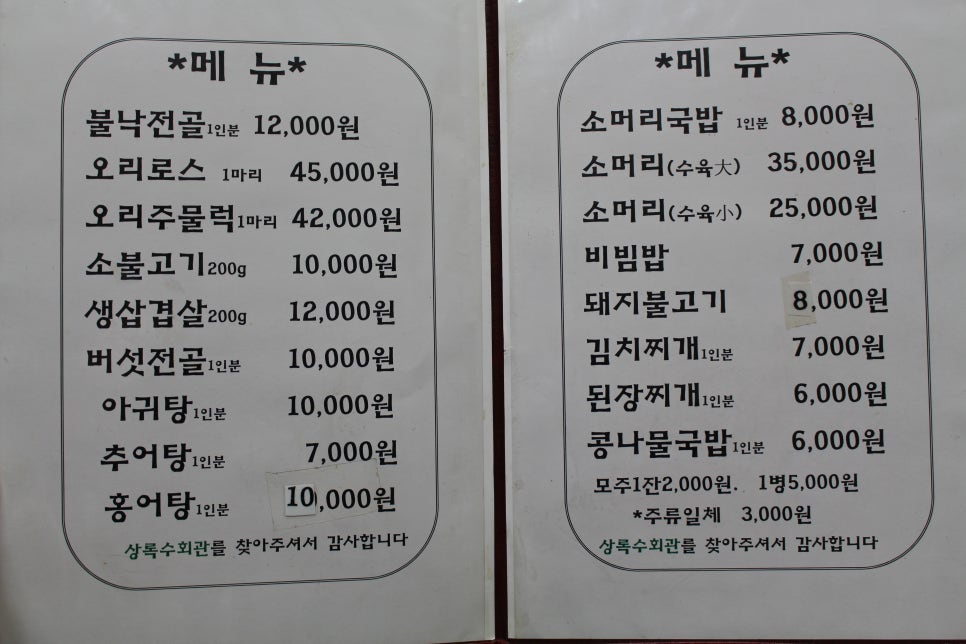 *메 뉴*
불낙전골1인분 12,000원
오리로스 1마리 45,000원
오리주물럭1마리 42,000원
소불고기200g 10,000원
생삼겹살200g 12,000원
버섯전골1인분 10,000원
아귀탕1인분 10,000원
추어탕1인분 7,000원
홍어탕1인분 10,000원
상록수회관를 찾아주셔서 감사합니다
*메 뉴*
소머리국밥 1인분 8,000원
소머리(수육大) 35,000원
소머리(수육小) 25,000원
비빔밥 7,000원
돼지불고기 8,000원
김치찌개1인분 7,000원
된장찌개1인분 6,000원
콩나물국밥1인분 6,000원
모주1잔2,000원. 1병5,000원
*주류일체 3,000원
상록수회관를 찾아주셔서 감사합니다